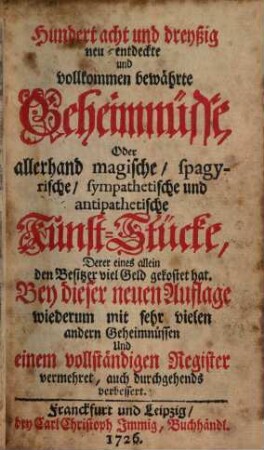 Hundert acht und dreyßig
neu-entdeckte
und
vollkommen bewährte
Geheimnüsse,
Oder
allerhand magische/ spagy-
rische/ sympathetische und
antipathetische
Kunst-Stücke,
Derer eines allein
den Besitzer viel Geld gekostet hat.
Bey dieser neuen Auflage
wiederum mit sehr vielen
andern Geheimnüssen
Und
einem vollständigen Register
vermehret, auch durchgehends
verbessert.
Franckfurt und Leipzig/
bey Carl Christoph Immig, Buchhändl.
1726.